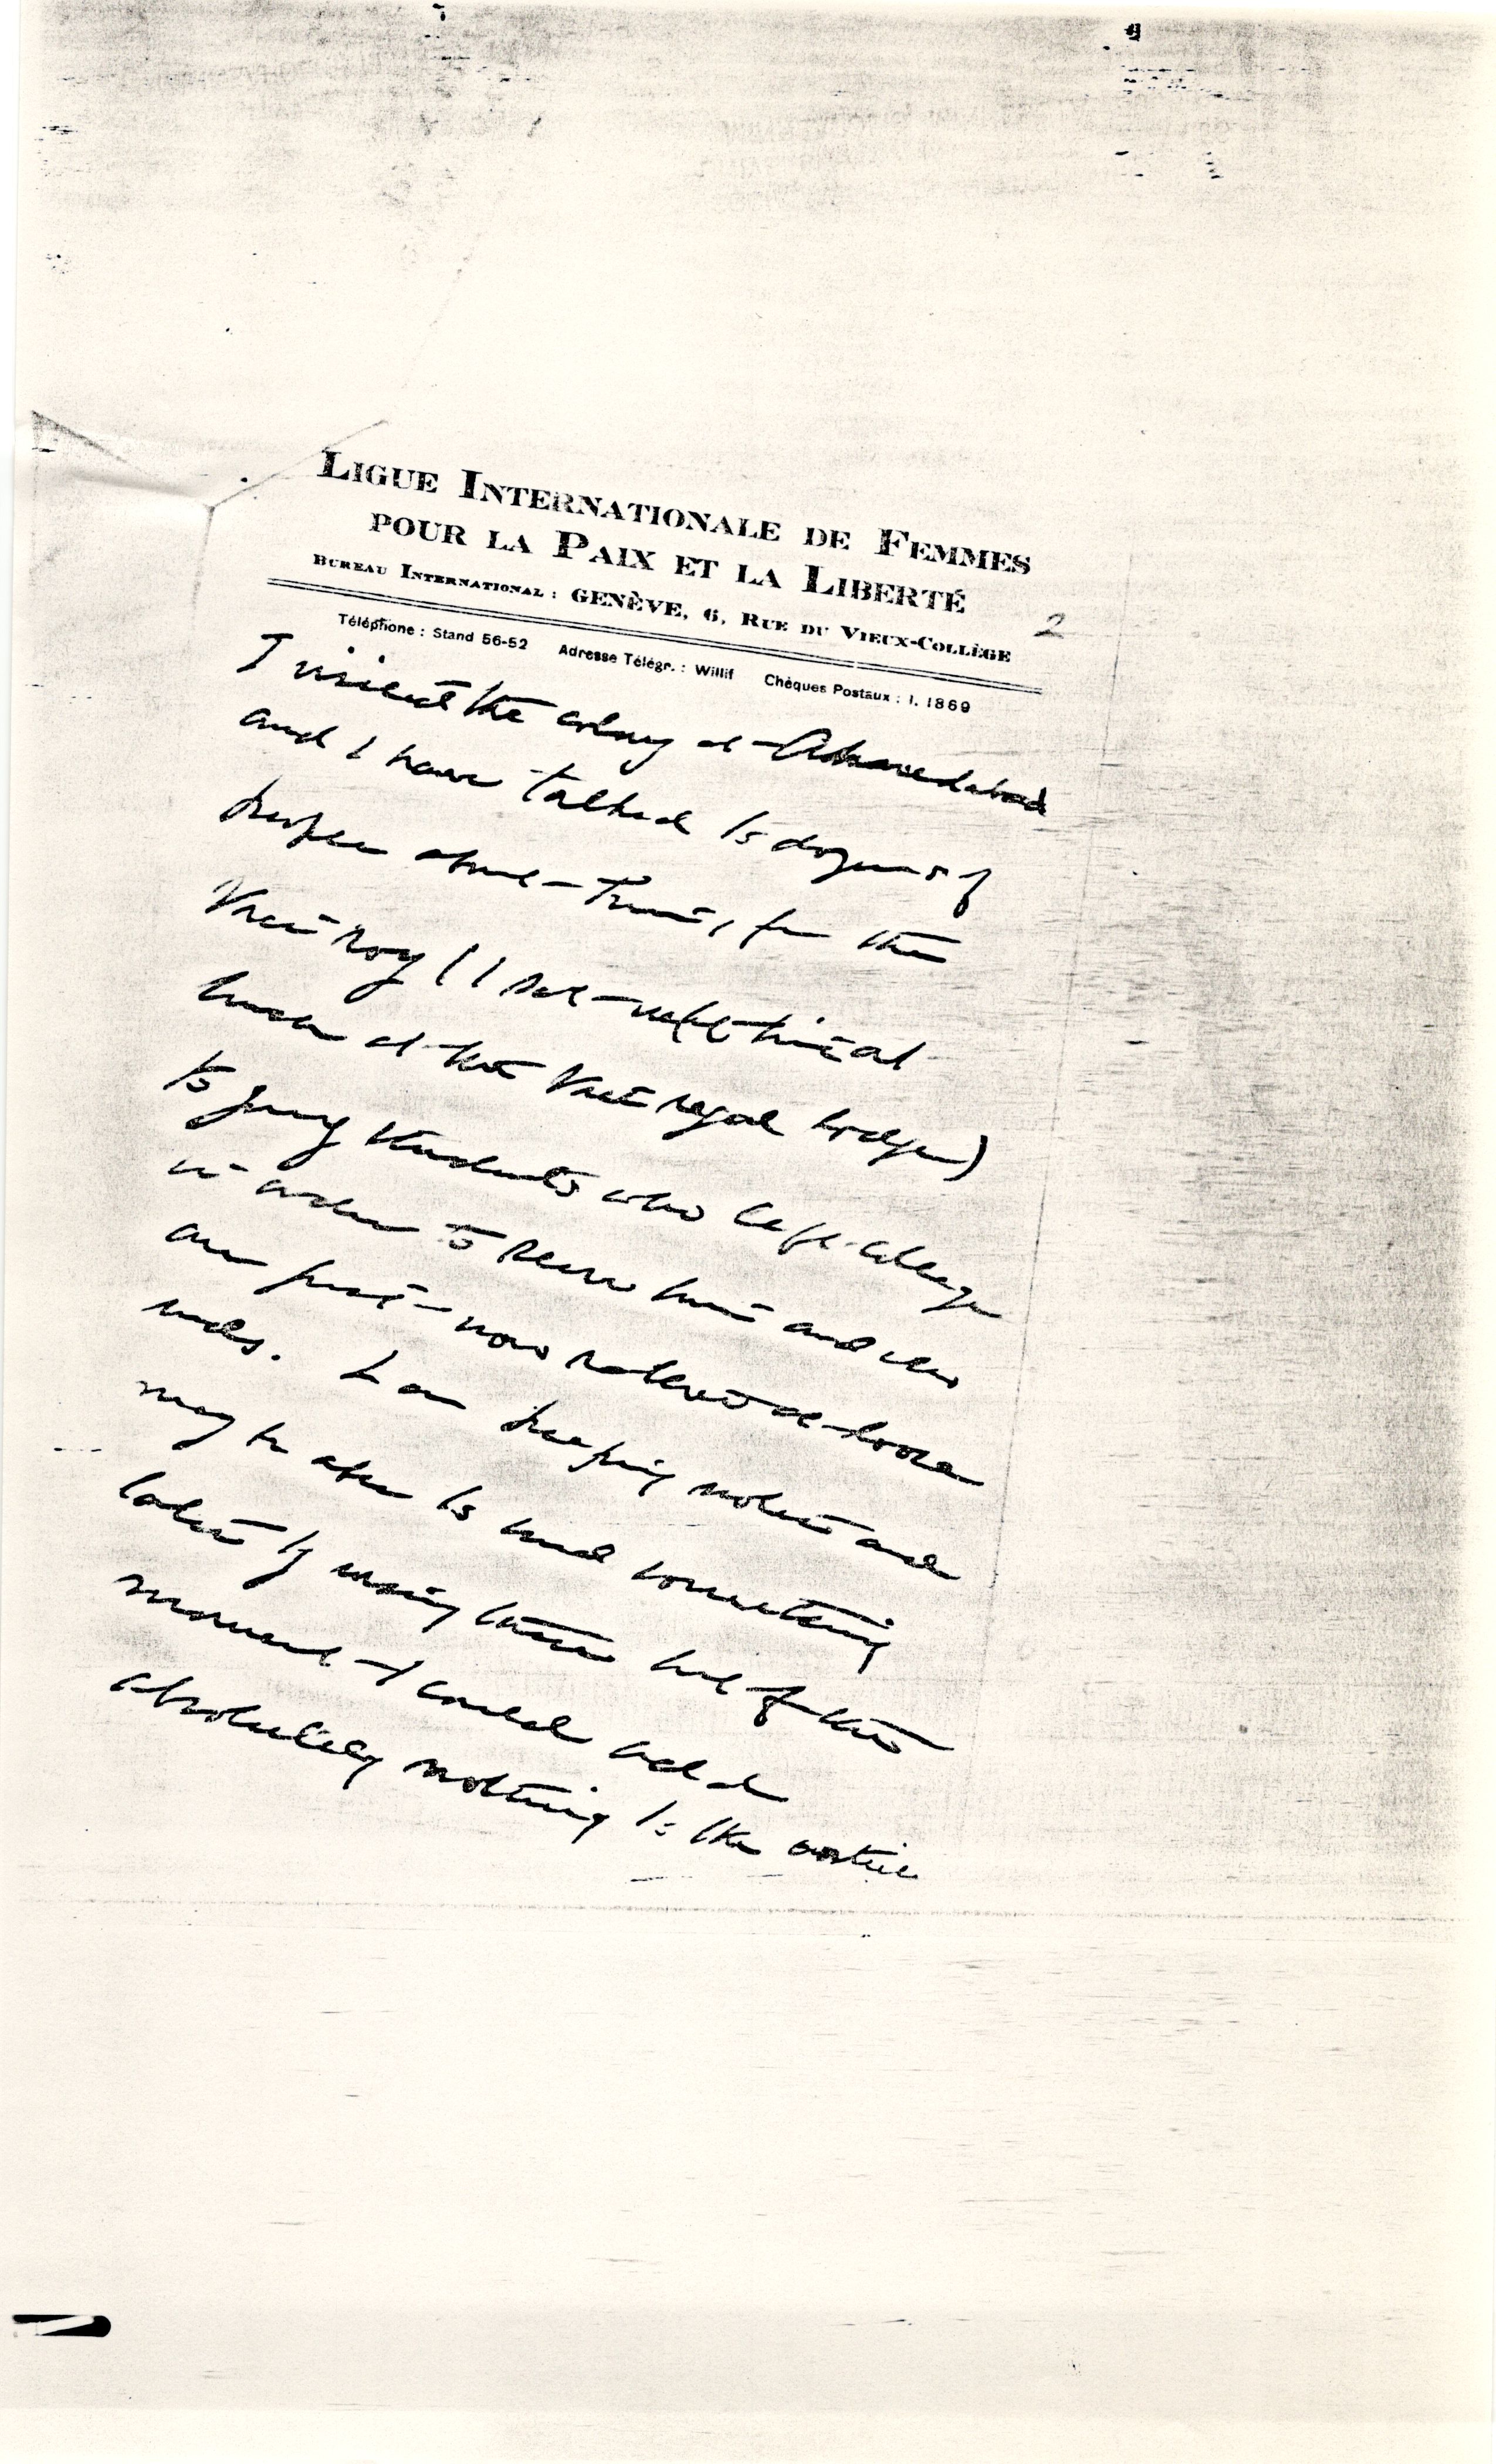 LIGUE INTERNATIONALE DE FEMMES
POUR LA PAIX ET LA LIBERTÉ
BUREAU INTERNATIONAL : GENÈVE, 6, RUE DU VIEUX-COLLÈGE
2
Téléphone : Stand 56-52 Adresse Télégr. : Willif Chèques Postaux : I. 1869
I visited the colony at Ahmedabad
and I have talked to dozens of
people about him, from the
Viceroy (I sat next to him at
lunch at the Vice regal lodge)
to young students who left college
in order to follow him and who
are just now rather at loose
ends. I am keeping notes and
may be able to send something
later by using them but for the
moment I could add
absolutely nothing to the article